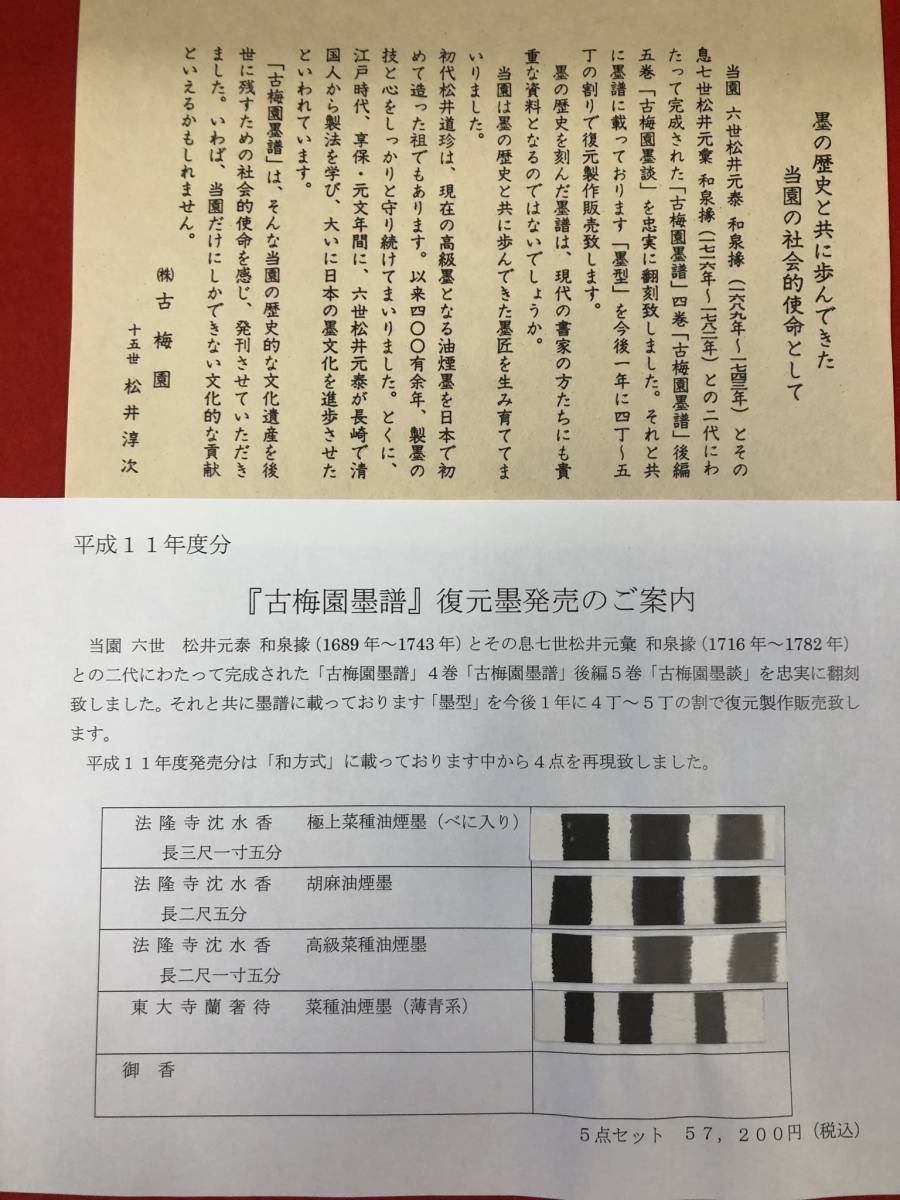 墨の歴史と共に歩んできた
当園の社会的使命として
当園 六世松井元泰 和泉掾(一六八九年～一七四三年) とその
息七世松井元彙 和泉掾(一七一六年～一七八二年) との二代にわ
たって完成された「古梅園墨譜」四巻「古梅園墨譜」後編
五巻「古梅園墨談」を忠実に翻刻致しました。それと共
に墨譜に載っております「墨型」を今後一年に四丁～五
丁の割りで復元製作販売致します。
墨の歴史を刻んだ墨譜は、現代の書家の方たちにも貴
重な資料となるのではないでしょうか。
当園は墨の歴史と共に歩んできた墨匠を生み育ててま
いりました。
初代松井道珍は、現在の高級墨となる油煙墨を日本で初
めて造った祖でもあります。以来四〇〇有余年、製墨の
技と心をしっかりと守り続けてまいりました。とくに、
江戸時代、享保・元文年間に、六世松井元泰が長崎で清
国人から製法を学び、大いに日本の墨文化を進歩させた
といわれています。
「古梅園墨譜」は、そんな当園の歴史的な文化遺産を後
世に残すための社会的使命を感じ、発刊させていただき
ました。いわば、当園だけにしかできない文化的な貢献
といえるかもしれません。
㈱ 古梅園
十五世 松井淳次
平成１１年度分
『古梅園墨譜』復元墨発売のご案内
当園 六世 松井元泰 和泉掾（1689年～1743年）とその息七世松井元彙 和泉掾（1716年～1782年）
との二代にわたって完成された「古梅園墨譜」４巻「古梅園墨譜」後編５巻「古梅園墨談」を忠実に翻刻
致しました。それと共に墨譜に載っております「墨型」を今後１年に４丁～５丁の割で復元製作販売致し
ます。
平成１１年度発売分は「和方式」に載っております中から４点を再現致しました。
法隆寺沈水香 極上菜種油煙墨（べに入り）
長三尺一寸五分
法隆寺沈水香 胡麻油煙墨
長二尺五分
法隆寺沈水香 高級菜種油煙墨
長二尺一寸五分
東大寺蘭奢待 菜種油煙墨（薄青系）
御香
５点セット ５７，２００円（税込）